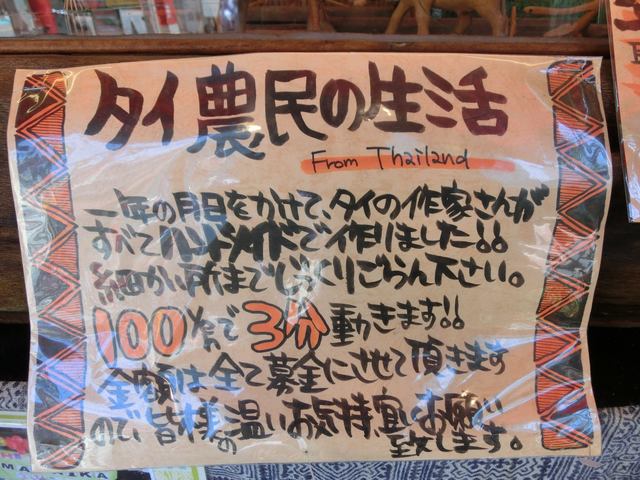 タイ農民の生活
From Thailand
一年の月日をかけて、タイの作家さんが
すべてハンドメイドで作りました!!
細かい所までじっくりごらん下さい。
100円で3分動きます!!
金額は全て募金にさせて頂きます
ので、皆様の温いお気持宜しくお願い
致します。